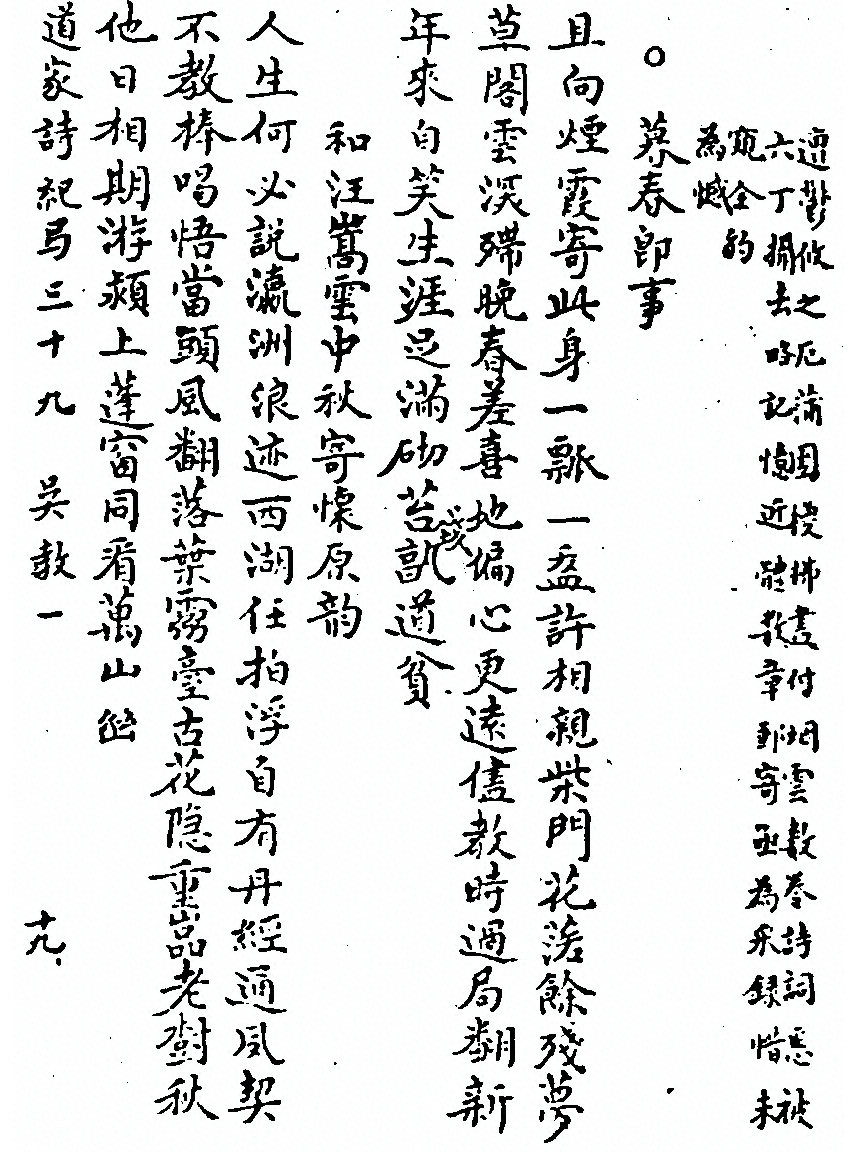 遭鬱攸之厄蒲團椶拂盡付烟雲數卷詩詞悉被
六丁攝去略記憶近體數章郵寄亟為采録惜未
窺全豹
為憾
○ 暮春即事
且向煙霞寄此身一瓢一盂許相親柴門花落餘殘夢
草閣雲深殢晚春差喜地偏心更遠儘教時過局翻新
年來自笑生涯足滿砌苔錢詎道貧
和汪嵩雲中秋寄懷原韵
人生何必說瀛洲浪迹西湖任拍浮自有丹經通夙契
不教棒喝悟當頭風翻落葉霧臺古花隱重嵒老樹秋
他日相期游潁上蓬窗同看萬山幽
道家詩紀弓三十九 吳教一 十九